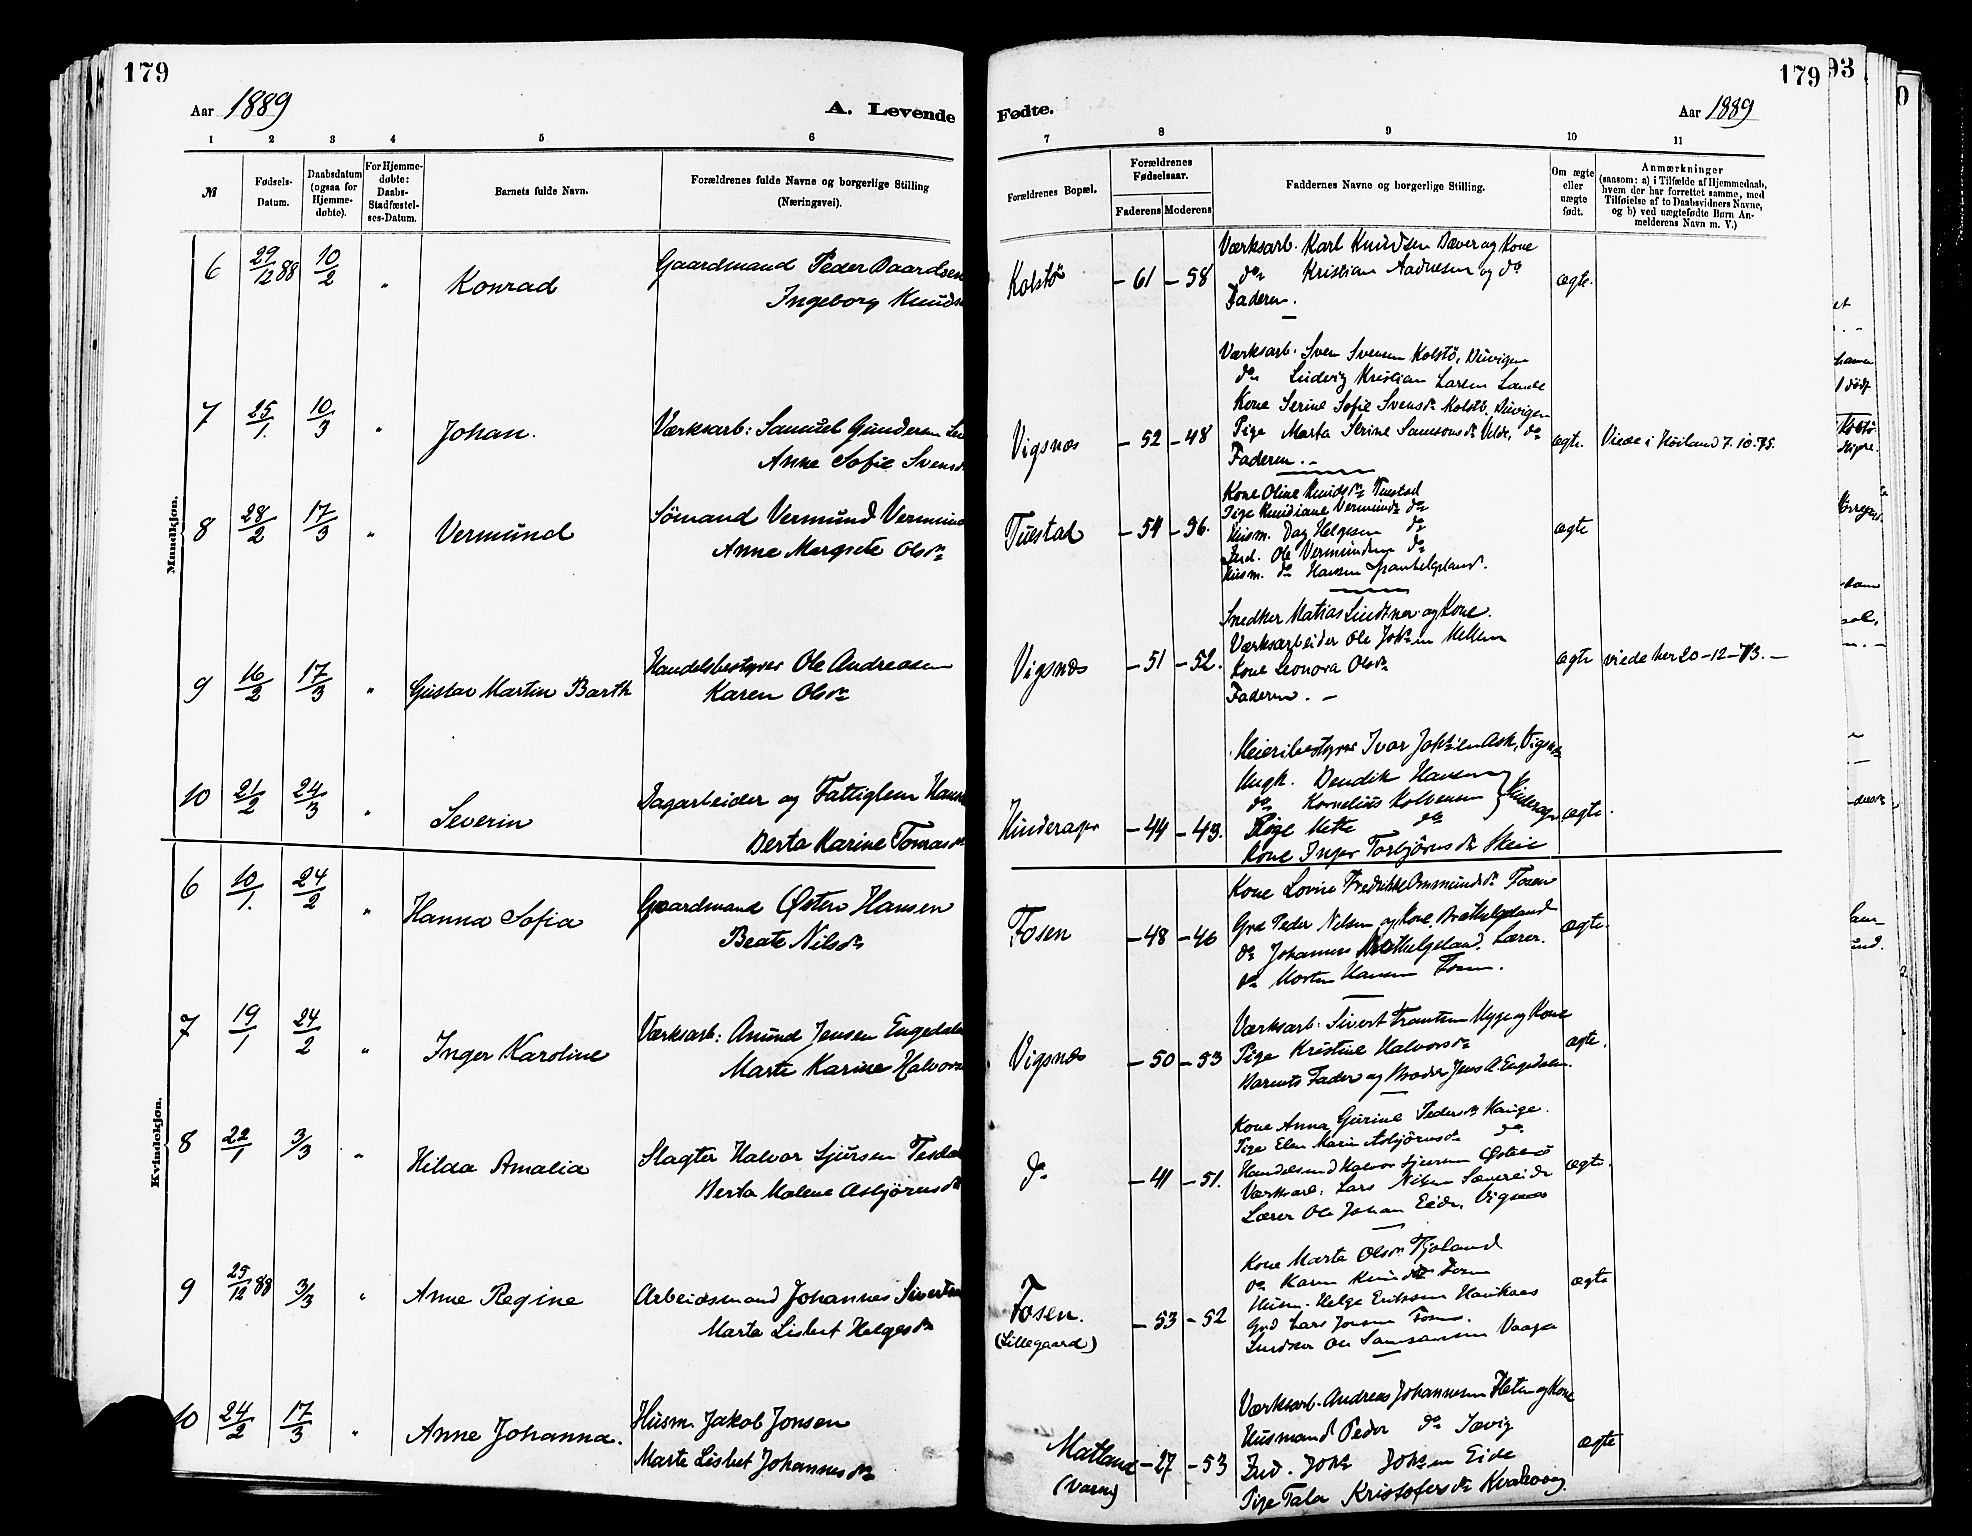 179
Aar 1889
A. Levende
1 2 3 4 5 6
№
Fødsels-Datum.
Daabsdatum (ogsaa for Hjemme-døbte).
For Hjemme-døbte: Daabs-Stadfæstel-ses-Datum.
Barnets fulde Navn.
Forældrenes fulde Navne og borgerlige Stilling
(Næringsvei).
Mandkjøn.
6 29/12 88 10/2 " Konrad Gaardmand Peder Baardsen
Ingeborg Knuds
7 25/1. 10/3 " Johan. Værksarb: Samuel Gundersen
Anne Sofie Svensd
8 28/2 17/3 " Vermund Sömand Vermund Vermund
Anne Margrete Olsdr
9 16/2 17/3 " Gustav Martin Barth Handelsbestyrer Ole Andreasen
Karen Olsdr
10 21/2 24/3 " Severin Dagarbeider og Fattiglem Hans
Berta Karine Tomasdr
Kvindekjøn.
6 10/1. 24/2 " Hanna Sofia Gaardmand Østen Hansen
Beate Nilsdr
7 19/1 24/2 " Inger Karoline Værksarb: Amund Jensen Engedalen
Marte Karine Halvors
8 22/1 3/3 " Hilda Amalia Slagter Halvor Sjursen Tesdal
Berta Malene Asbjörnsdr
9 25/12 88 3/3 " Anne Regine Arbeidsmand Johannes Sivertsen
Marta Lisbet Helgesdr
10 24/2 17/3 " Anne Johanna. Husm. Jakob Jonsen
Marte Lisbet Johannesdr
179
Fødte.
Aar 1889
7 8 9 10 11
Forældrenes Bopæl.
Forældrenes Fødselsaar.
Faderens Moderens
Faddernes Navne og borgerlige Stilling.
Om ægte eller uægte født.
Anmærkninger
(saasom: a) i Tilfælde af Hjemmedaab,
hvem der har forrettet samme, med
Tilføielse af to Daabsvidners Navne,
og b) ved uægtefødte Børn An-
melderens Navn m. V.)
Værksarb. Karl Knudsen Bæver og Kone
Kolstö – 61 – 58 do Kristian Aadnesen og do ægte.
Faderen.
Værksarb. Sven Svensen Kolstö, Duvigen
do Ludvig Kristian Larsen Lande
Kone Serine Sofie Svensdr Kolstö, Duvigen
Vigsnæs – 52 – 48 Pige Marta Serine Samsonsdr Velde, do ægte. Viede i Höiland 7.10.75.
Faderen. –
Kone Oline Knudsdr Tuestad
Pige Knudiane Vermundsdr do
Tuestad – 54 – 96. Husm. Dag Helgesen do ægte
Ind. Ole Vermundsen do
Husm. do Hansen
Snedker Matias Lindtner og Kone.
Værksarbeider Ole Johsen Mellem
Vigsnæs – 51 – 52. Kone Leonora Olsdr ægte viede her 20–12–73. –
Faderen. –
Meieribestyrer Ivar Johsen Ask, Vigsnæs
Ungk. Bendik Hansen
do Kornelius Kolvensen Hinderager
Hinderager – 44 – 43. Pige Mette do ægte.
Kone Inger Torbjörnsdr Skeie
Kone Lovise Fredrikke Ommundsdr Fosen
Fosen – 48 – 46 Grd Peder Nilsen og Kone, Brathelgeland ægte.
do Johannes Brathelgeland. Lærer.
do Morten Hansen Fosen.
Værksarb. Sivert Frantsen Myge og Kone
Vigsnæs – 50 – 53 Pige Kristine Halvorsdr ægte.
Barnets Fader og Broder Jens A. Engedalen.
Kone Anna Gurine Pedersdr Hauge.
Pige Elen Marie Asbjörnsdr do
do – 41 – 51. Handelsmd Halvor Sjursen Östenö ægte.
Værksarb: Lars Nilsen Sævereide
Lærer Ole Johan Eide, Vigsnæs
Kone Marta Olsdr Fjoland
do Karen Knudsdr Fosen
Fosen. – 53 – 52 Husm. Helge Eriksen Haviknæs ægte
(Lillegaard) Grd Lars Jonsen Fosen.
Snedker Ole Samsonsen Vaaga
Værksarb. Andreas Johannesen Fleten og Kone
Matland – 27 – 53 Husmand Peder do Sævig ægte
Ind. Johs Johsen Eide
Pige Tala Kristofersdr Kvalevaag
93
0